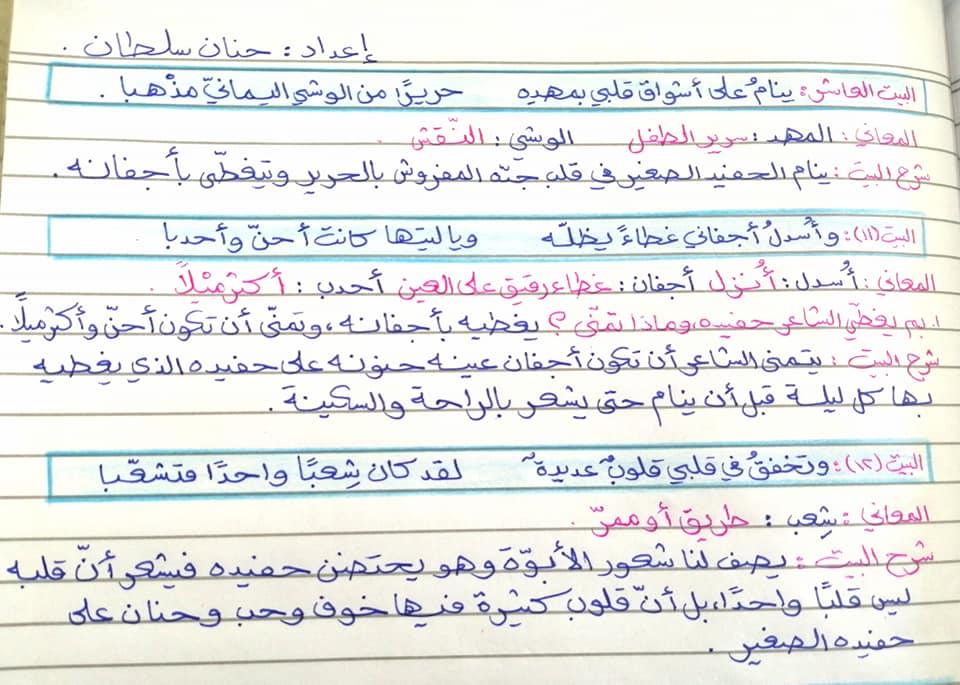 إعداد : حنان سلطان .
البيت العاشر: ينامُ على أشواق قلبي بمهدِهِ حريرًا من الوشي اليمانيّ مذْهبا .
المعاني : المهد : سرير الطفل الوشي : النّقش .
شرح البيت : ينام الحفيد الصغير في قلب جدّه المفروش بالحرير وتيغطّى بأجفانه .
البيت (١١): وأُسدلُ أجفاني غطاءً يظلّه وياليتها كانت أحنّ وأحدبا
المعاني : أُسدل : أُنزل أجفان : غطاء رقيق على العين أحدب : أكثر ميْلًا .
١. بم يغطّي الشاعر حفيده، وماذا تمنّى ؟ يغطيه بأجفانه ، وتمنّى أن تكون أحنّ وأكثر ميلًا .
شرح البيت : يتمنى الشاعر أن تكون أجفان عينه حنونه على حفيده الذي يغطيه
بها كل ليلة قبل أن ينام حتى يشعر بالراحة والسكينة .
البيت (١٢): وتخفقُ في قلبي قلوبٌ عديدةٌ لقد كان شِعبًا واحدًا فتشعّبا
المعاني : شِعب : طريق أو ممرّ .
شرح البيت : يصف لنا شعور الأبوّة وهو يحتضن حفيده فيشعر أنّ قلبه
ليس قلبًا واحدًا، بل أنّ قلوب كثيرة فيها خوف وحب وحنان على
حفيده الصغير .